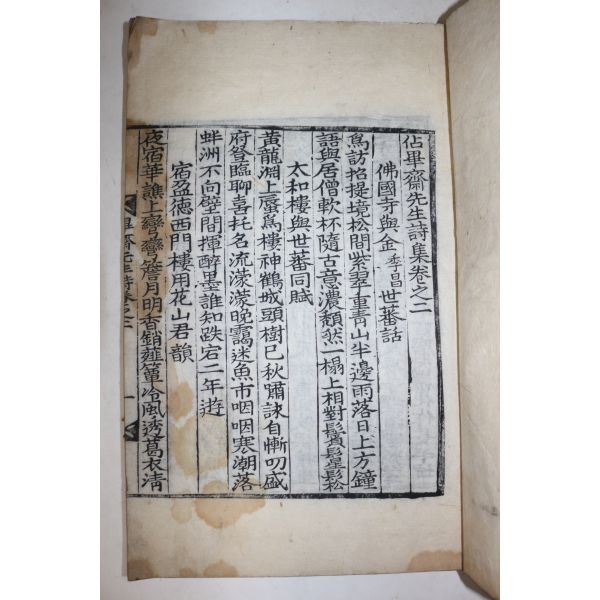 佔畢齋先生詩集卷之二
佛國寺與金季昌世蕃話
爲訪招提境松間紫翠重青山半邊雨落日上方鐘
語與居僧軟杯隨古意濃頹然一榻上相對鬢鬅鬆
太和樓與世蕃同賦
黃龍淵上蜃爲樓神鶴城頭樹已秋嘯詠自慚叨盛
府登臨聊喜托名流濛濛晚靄迷魚市咽咽寒潮落
蚌洲不向壁間揮醉墨誰知跌宕二年遊
宿盈德西門樓用花山君韻
夜宿華譙上彎彎簷月明香銷薤簟冷風透葛衣淸
畢齋先生詩卷之二
一